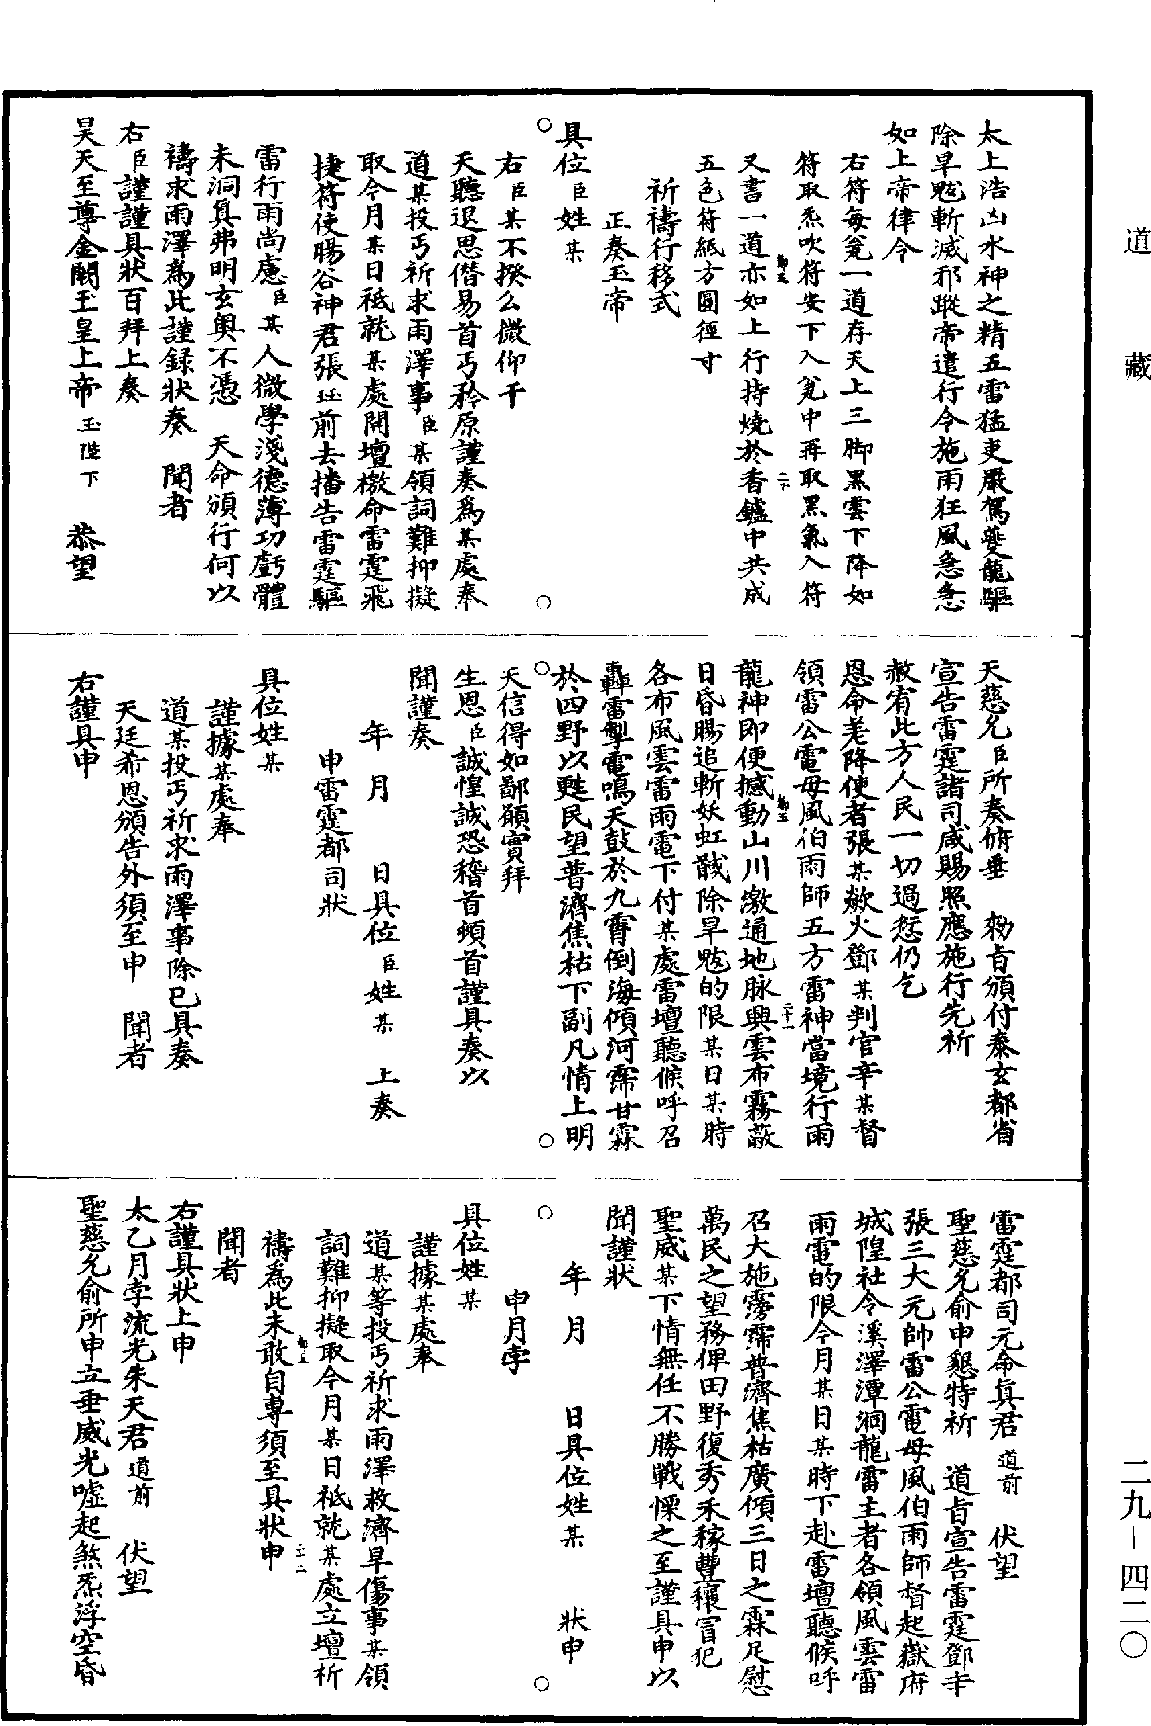 道藏
太上浩凶水神之精五雷猛吏嚴駕夔龍驅
除旱魃斬滅邪蹤帝遣行令施雨狂風急急
如上帝律令
右符每瓮一道存天上三脚黑雲下降如
符取炁吹符安下入瓮中再取黑氣入符
又書一道亦如上行持燒於香鑪中共成
五色符紙方圓徑寸
祈禱行移式
正奏玉帝
具位臣姓某
右臣某不揆么微仰干
天聽退思僭易首丐矜原謹奏爲某處奉
道某投丐祈求雨澤事臣某領詞難抑擬
取今月某日祗就某處開壇檄命雷霆飛
捷符使腸谷神君張珏前去播告雷霆驅
雷行雨尚慮臣某人微學淺德薄功虧體
未洞真弗明玄奧不憑 天命頒行何以
禱求雨澤爲此謹録狀奏 聞者
右臣謹謹具狀百拜上奏
昊天至尊金闕玉皇上帝玉陛下 恭望
天慈允臣所奏俯垂 勑旨頒付泰玄都省
宣告雷霆諸司咸賜照應施行先祈
赦宥此方人民一切過愆仍乞
恩命差降使者張某歘火鄧某判官辛某督
領雷公電母風伯雨師五方雷神當境行雨
龍神即便撼動山川激通地脉興雲布霧蔽
日昏腸追斬妖虹戮除旱魃的限某日某時
各布風雲雷雨電下付某處雷壇聽候呼召
轟雷掣電鳴天鼓於九霄倒海傾河霈甘霖
於四野以甦民望普濟焦枯下副凡情上明
天信得如鄙願實拜
生恩臣誠惶誠恐稽首頓首謹具奏以
聞謹奏
年 月 日具位臣姓某 上奏
申雷霆都司狀
具位姓某
謹據某處奉
道某投丐祈求雨澤事除已具奏
天廷希恩頒告外須至申 聞者
右謹具申
雷霆都司元命真君道前 伏望
聖慈允俞申懇特祈 道旨宣告雷霆鄧辛
張三大元帥雷公電母風伯雨師督起嶽府
城隍社令溪澤潭洞龍雷主者各領風雲雷
雨電的限今月某日某時下赴雷壇聽候呼
召大施霶霈普濟焦枯廣傾三日之霖足慰
萬民之望務俾田野復秀禾稼豐穰冒犯
聖威某下情無任不勝戰慄之至謹具申以
聞謹狀
年 月 日具位姓某 狀申
申月孛
具位姓某
謹據某處奉
道某等投丐祈求雨澤救濟旱傷事某領
詞難抑擬取今月某日祗就某處立壇祈
禱爲此未敢自專須至具狀申
聞者
右謹具狀上申
太乙月孛流光朱天君道前 伏望
聖慈允俞所申立垂威光噓起煞炁浮空昏
二九－四二〇